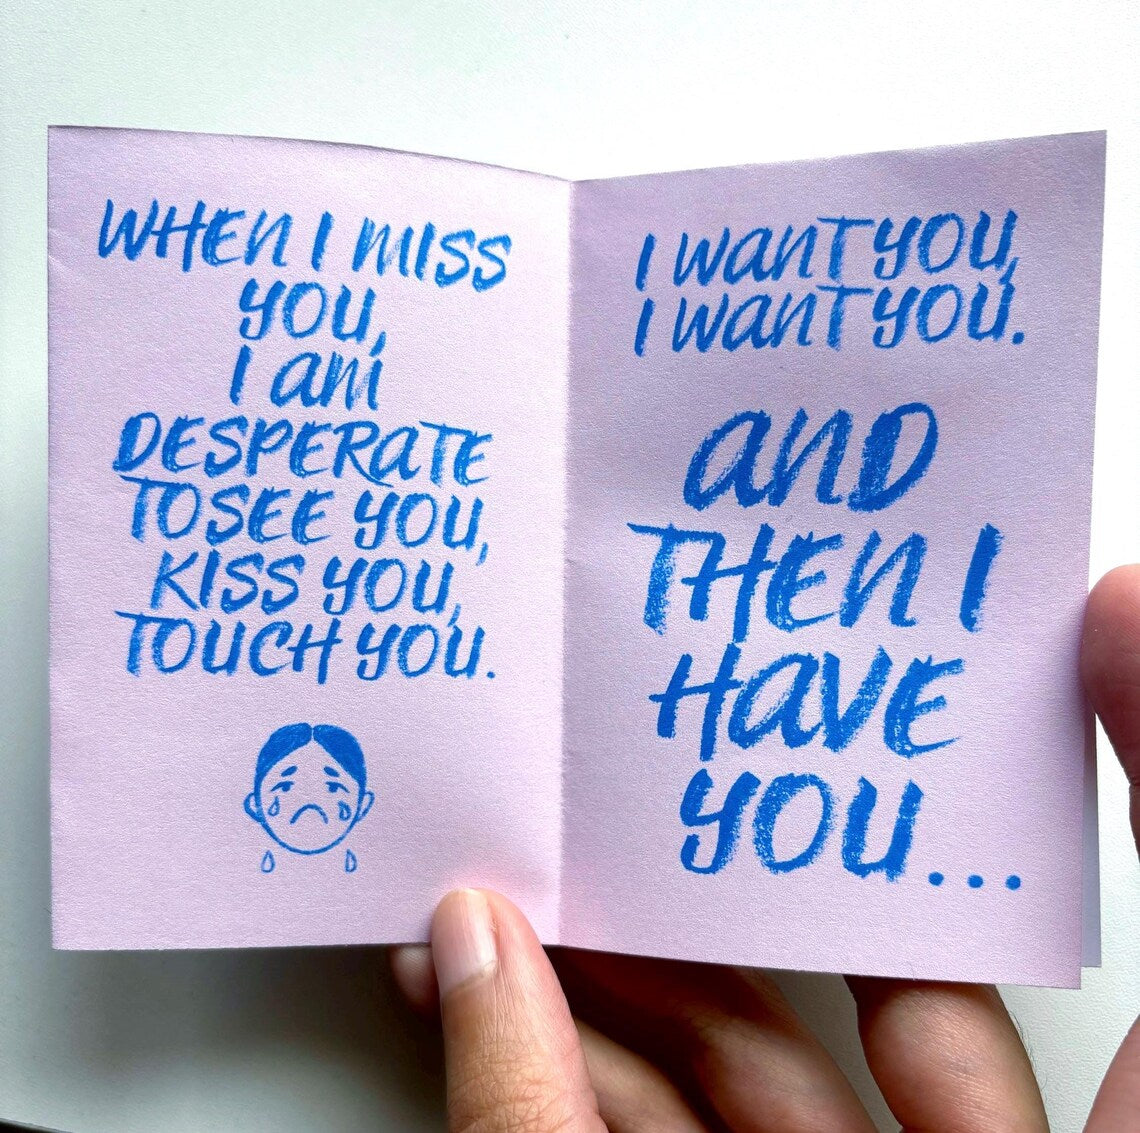 WHEN I MISS
YOU,
I AM
DESPERATE
TO SEE YOU,
KISS YOU,
TOUCH YOU.
I WANT YOU,
I WANT YOU.
AND
THEN I
HAVE
YOU...